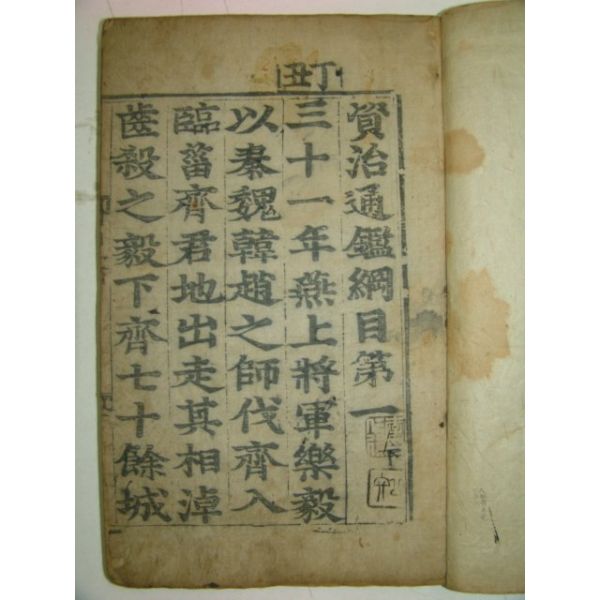 丁丑
資治通鑑綱目第一
三十一年燕上將軍樂毅
以秦魏韓趙之師伐齊入
臨菑齊君地出走其相淖
齒殺之毅下齊七十餘城